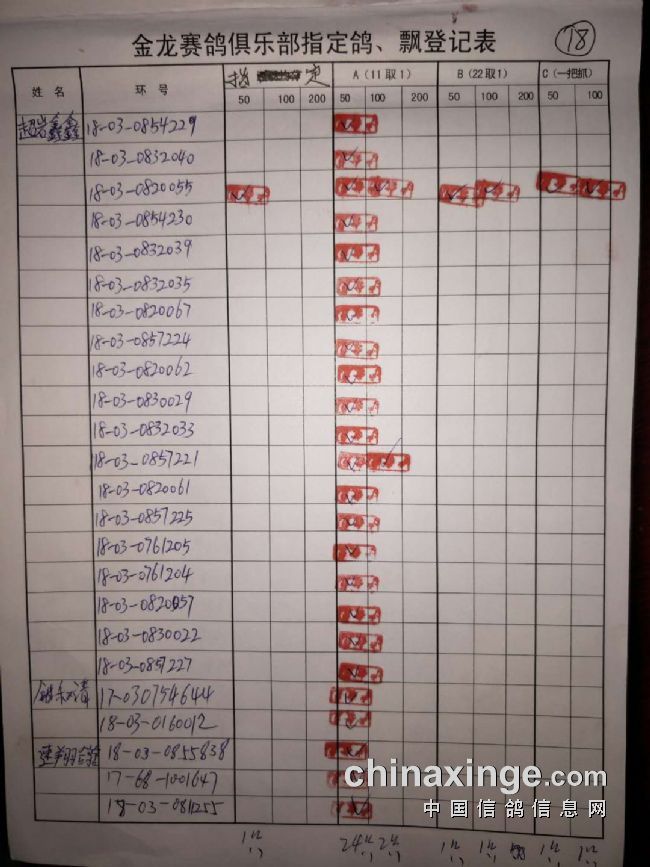 金龙赛鸽俱乐部指定鸽、飘登记表
18
姓名 环号 指 定 A（11取1） B（22取1） C（一把抓）
50 100 200 50 100 200 50 100 200 50 100
18-03-0854229
18-03-0832040
18-03-0820055
18-03-0854230
18-03-0832039
18-03-0832035
18-03-0820067
18-03-0857224
18-03-0820062
18-03-0830029
18-03-0832033
18-03-0857221
18-03-0820061
18-03-0857225
18-03-0761205
18-03-0761204
18-03-0820057
18-03-0830022
18-03-0857227
17-030754644
18-03-0160012
18-03-0855838
17-68-1001647
18-03-0811255
chinaxinge.com
中国信鸽信息网